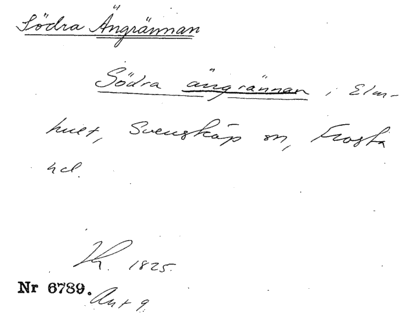 Södra Ängrännan
Södra ängrännan i Elm-
hult, Svensköp sn, Frosta
hd.
Kr. 1825.
Nr 6789. Akt 9.